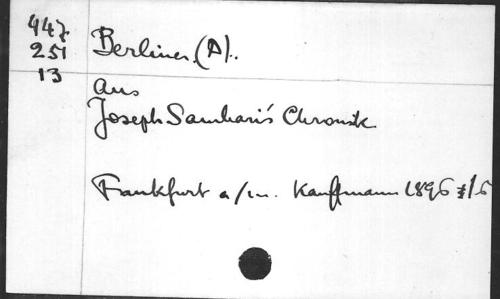 447
251
13
Berliner (A).
Aus
Joseph Sambari's Chronik
Frankfurt a/m. Kauffmann 1896